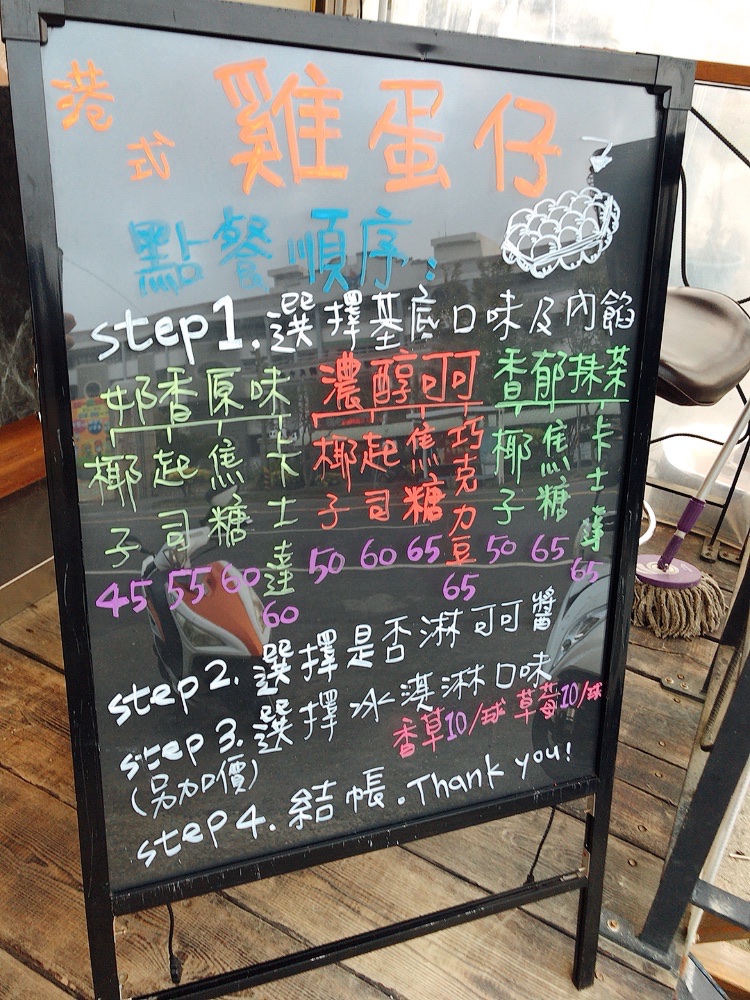 港式 雞蛋仔
點餐順序:
step1.選擇基底口味及內餡
奶香原味 濃醇可可 香郁抹茶
椰子 起司 焦糖 卡士達 椰子 起司 焦糖 巧克力豆 椰子 焦糖 卡士達
45 55 60 60 50 60 65 65 50 65 65
step2.選擇是否淋可可醬
step3.選擇冰淇淋口味
(另加價) 香草10/球 草莓10/球
step4.結帳.Thank you!